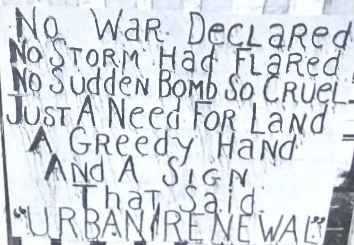 No WAR DecLARed
No STORM Had FLARed
No Sudden BomB So CRueL
JusT A Need FoR LaNd
A GReedy HaNd
ANd A SigN
ThaT Said
"URBAN RENEWAL"